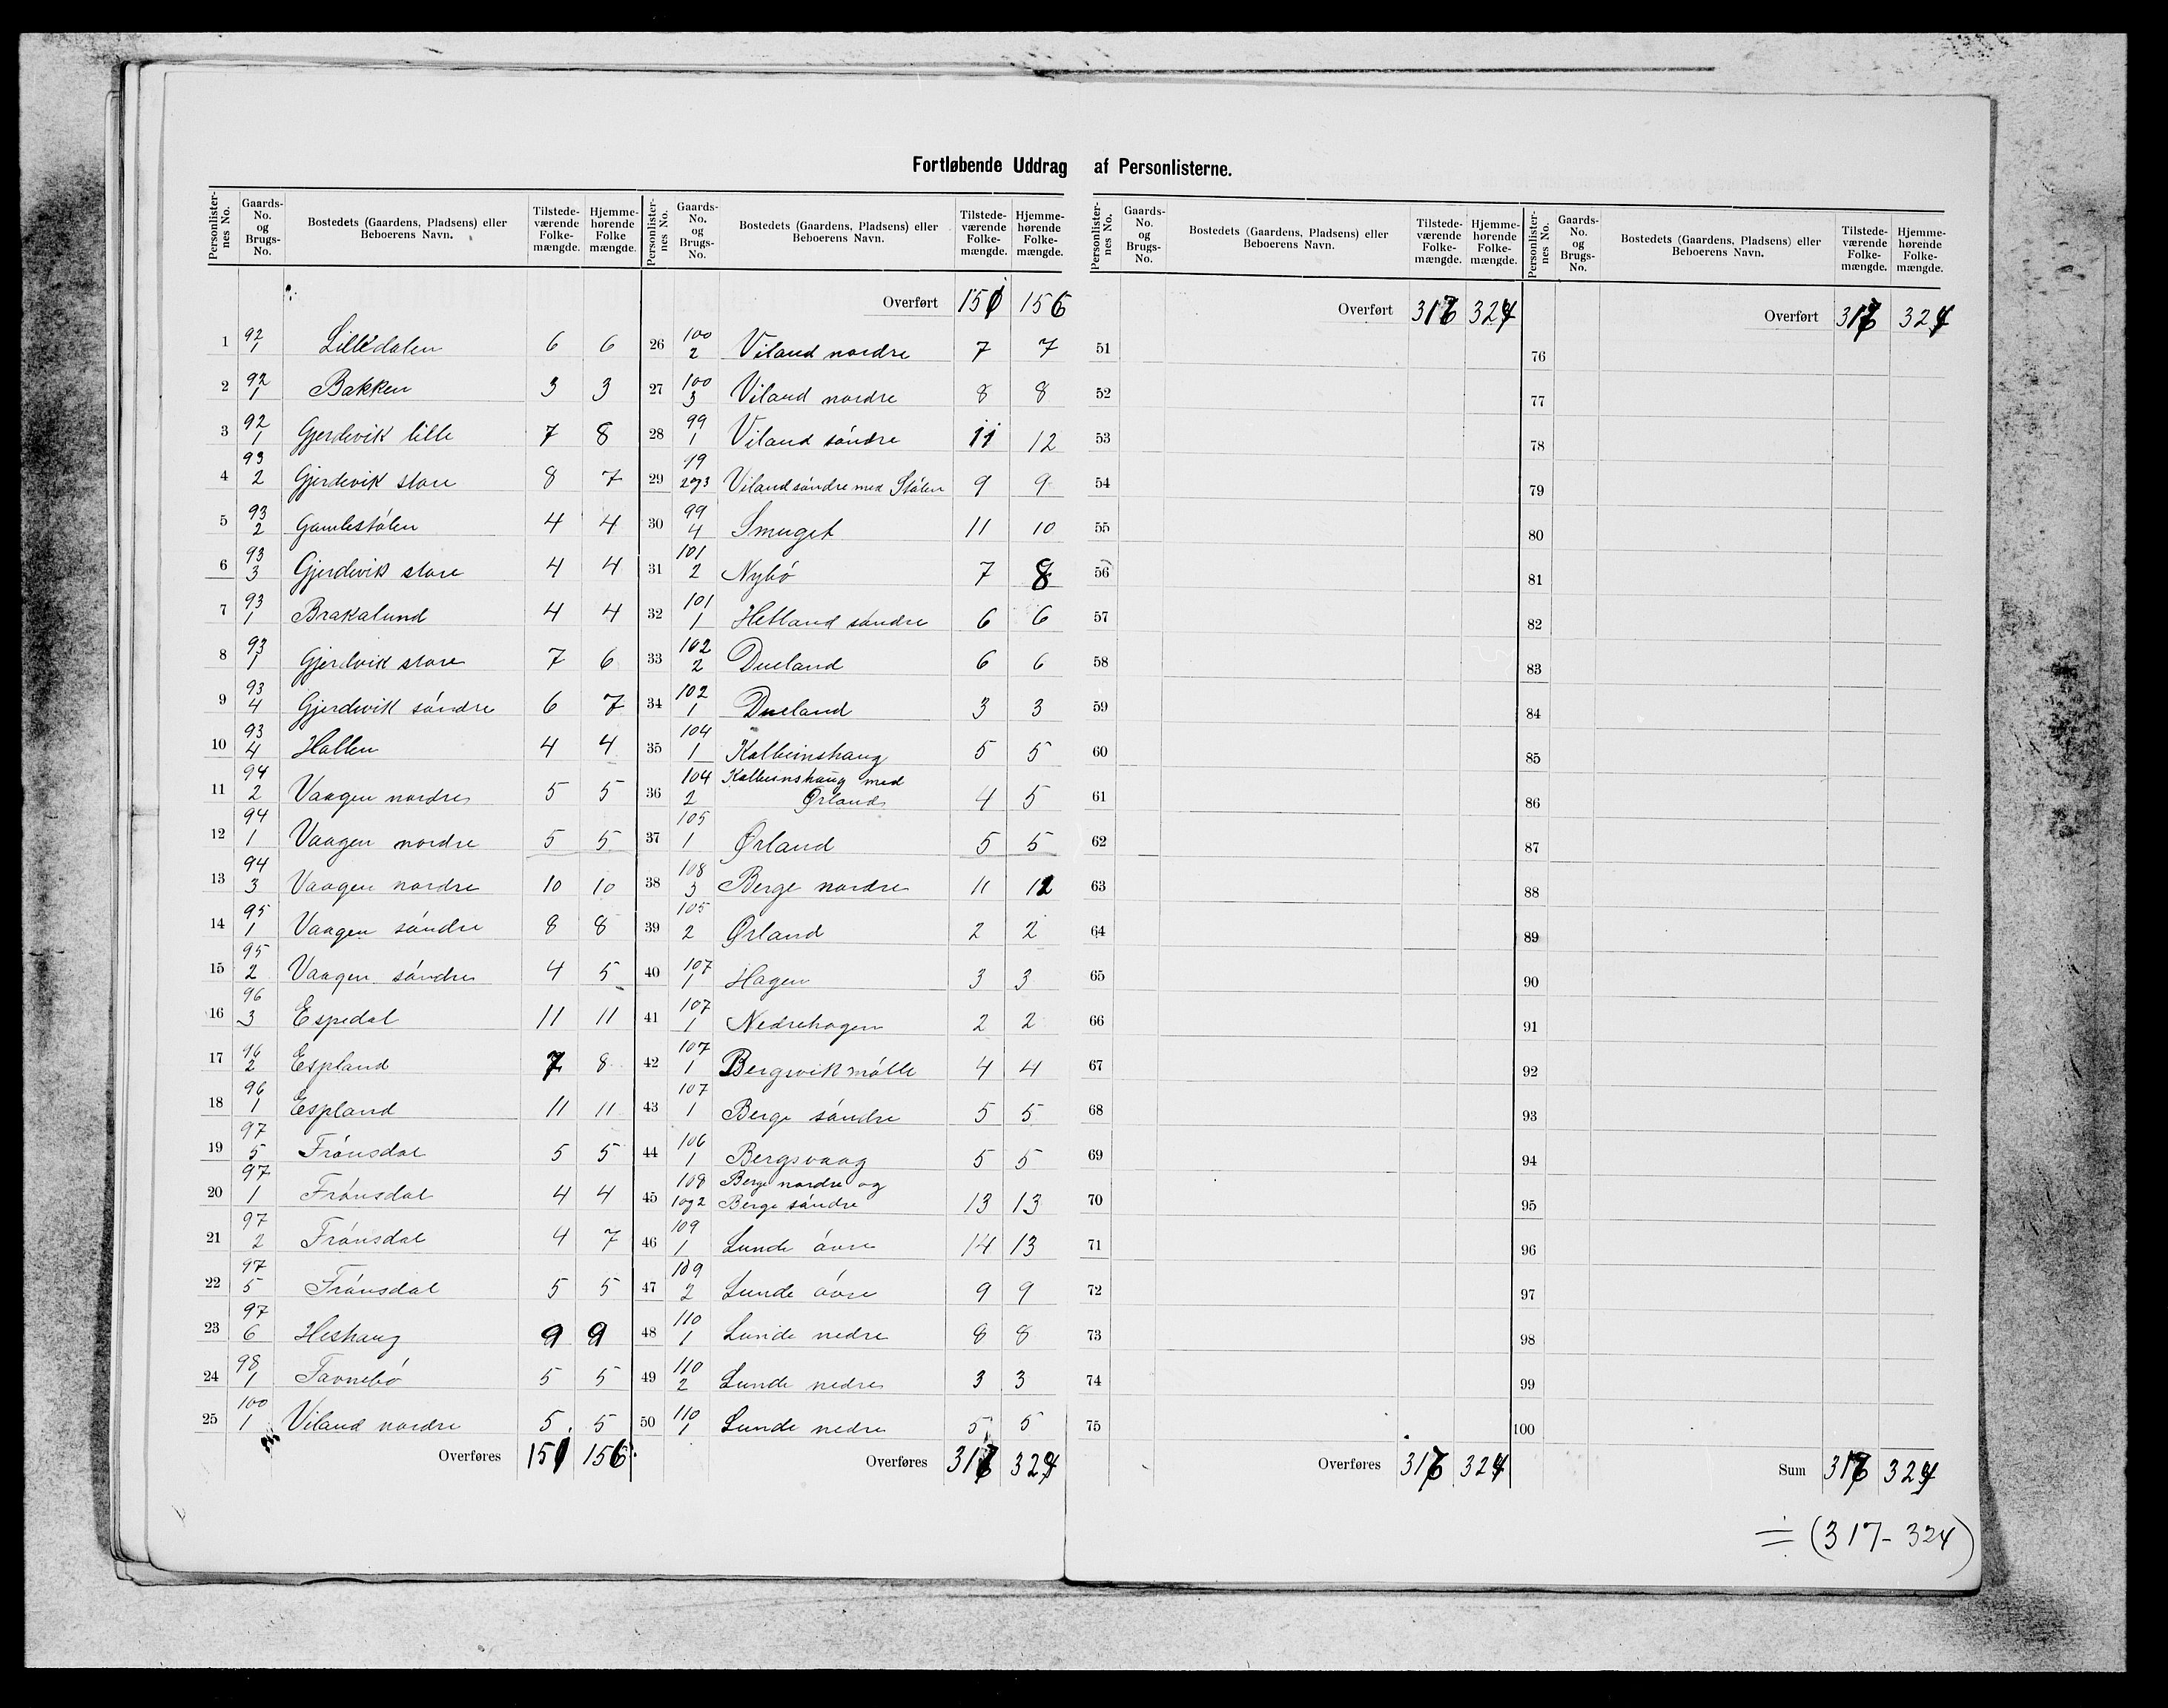 Fortløbende Uddrag af Personlisterne.
Personlister-nes No. Gaards-No. og Brugs-No. Bostedets (Gaardens, Pladsens) eller Beboerens Navn. Tilstede-værende Folke-mængde. Hjemme-hørende Folke mængde.
1 92 1 Lilledalen 6 6
2 92 1 Bakken 3 3
3 92 1 Gjerdevik lille 7 8
4 93 2 Gjerdevik store 8 7
5 93 2 Gamlestølen 4 4
6 93 3 Gjerdevik store 4 4
7 93 1 Brakalund 4 4
8 93 1 Gjerdvik store 7 6
9 93 4 Gjerdevik søndre 6 7
10 93 4 Hallen 4 4
11 94 2 Vaagen nordre 5 5
12 94 1 Vaagen nordre 5 5
13 94 3 Vaagen nordre 10 10
14 95 1 Vaagen søndre 8 8
15 95 2 Vaagen søndre 4 5
16 96 3 Espedal 11 11
17 96 2 Espland 7 8
18 96 1 Espland 11 11
19 97 5 Frønsdal 5 5
20 97 1 Frønsdal 4 4
21 97 2 Frønsdal 4 7
22 97 5 Frønsdal 5 5
23 97 6 Heshaug 9 9
24 98 1 Favnebø 5 5
25 100 1 Viland nordre 5 5
Overføres 151 156
Personlister-nes No. Gaards-No. og Brugs-No. Bostedets (Gaardens, Pladsens) eller Beboerens Navn. Tilstede-værende Folke-mængde. Hjemme-hørende Folke-mængde.
Overført 151 156
26 100 2 Viland nordre 7 7
27 100 3 Viland nordre 8 8
28 99 1 Viland søndre 11 12
29 99 2og3 Viland søndre med Stølen 9 9
30 99 4 Smuget 11 10
31 101 2 Nybø 7 8
32 101 1 Hetland søndre 6 6
33 102 2 Dueland 6 6
34 102 1 Dueland 3 3
35 104 1 Kolbeinshaug 5 5
36 104 2 Kolbeinshaug med
Ørland 4 5
37 105 1 Ørland 5 5
38 108 3 Berge nordre 11 12
39 105 2 Ørland 2 2
40 107 1 Hagen 3 3
41 107 1 Nedrehagen 2 2
42 107 1 Bergsvik mølle 4 4
43 107 1 Berge søndre 5 5
44 106 1 Bergsvaag 5 5
45 108 1og2 Berge nordre og
Berge søndre 13 13
46 109 1 Lunde øvre 14 13
47 109 2 Lunde øvre 9 9
48 110 1 Lunde nedre 8 8
49 110 2 Lunde nedre 3 3
50 110 1 Lunde nedre 5 5
Overføres 317 324
Personlister-nes No. Gaards-No. og Brugs-No. Bostedets (Gaardens, Pladsens) eller Beboerens Navn. Tilstede-værende Folke-mængde. Hjemme-hørende Folke-mængde.
Overført 317 324
51
52
53
54
55
56
57
58
59
60
61
62
63
64
65
66
67
68
69
70
71
72
73
74
75
Overføres 317 324
Personlister-nes No. Gaards-No. og Brugs-No. Bostedets (Gaardens, Pladsens) eller Beboerens Navn. Tilstede-værende Folke-mængde. Hjemme-hørende Folke-mængde.
Overført 317 324
76
77
78
79
80
81
82
83
84
85
86
87
88
89
90
91
92
93
94
95
96
97
98
99
100
Sum 317 324
= (317 - 324)